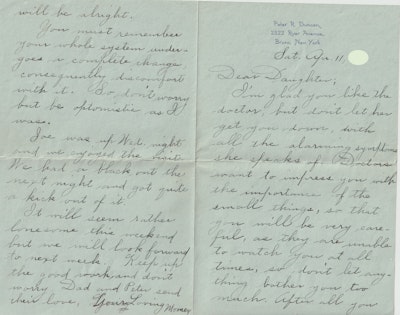 Peter R. Duncan,
2322 Ryer Avenue,
Bronx New York
Sat. Apr. 11,
Dear Daughter;
I'm glad you like the
doctor, but don't let her
get you down, with
all the alarming symptoms
she speaks of. Doctors
want to impress you with
the importance of the
small things, so that
you will be very care-
ful, as they are unable
to watch you at all
times, so don't let any-
thing bother you too
much. After all you
will be alright.
You must remember
your whole system under-
goes a complete change
consequently discomfort
with it. So don't worry
but be optomistic as I
was.
Joe was up Wed. night
and we enjoyed the visit.
We had a black out the
next night and got quite
a kick out of it.
It will seem rather
lonesome this weekend
but we will look forward
to next week. Keep up
the good work and don't
worry. Dad and Peter send
their love, Your Loving
Mommy